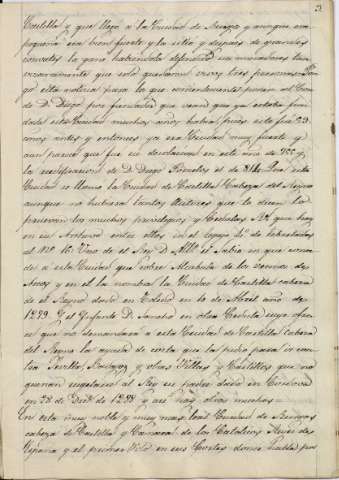 3
Castilla y que llegó a la Ciudad de Burgos y aunque era
pequeña era bien fuerte y la sitió y despues de grandes
combates la ganó habiendola defendido sus moradores tan
vizarramente que solo quedaron vivos tres personas
esta noticia para lo que entendieron ponen al Conde
de D. Diego por fundador que verná que ya estaba fun
dada esta Ciudad muchos años habia pues esto fué 23
años antes y entonces ya era Ciudad muy fuerte y
aun parece que fué su desolacion en este año de
la reedificacion de D. Diego Porcelos el de 884. Que esta
Ciudad se llama la Ciudad de Castilla Cabeza del Reyno
aunque no hubiera tantos Autores que lo dicen lo
prueban los muchos privilegios y Cedulas R.s que hay
en su Archivo entre ellos en el Cajon 4.º de
al nº 16. Uno de el Rey D. Alfº el Sabio en que
de a esta Ciudad que cobre Alcabala de los
Amos y en el la nombra la Ciudad de Castilla cabeza
de el Reyno dado en Toledo en 10 de Abril año de
1279. Y el Ynfante D. Sancho en otra Cedula cuyo
ce que no demandara a esta Ciudad de Castilla cabeza
del Reyno la ayuda de costa que la pidió para ir con
tra Sevilla, Badajoz y otras Villas y Castillos que no
querian seguir al Rey su padre dado en Cordova
en 28 de Dic.e de 1298 y asi hay otras muchas.
En esta muy noble y muy mas leal Ciudad de Burgos
cabeza de Castilla y Camara de los Catolicos Reyes de
España y el primer Voto en sus Cortes donde habla por